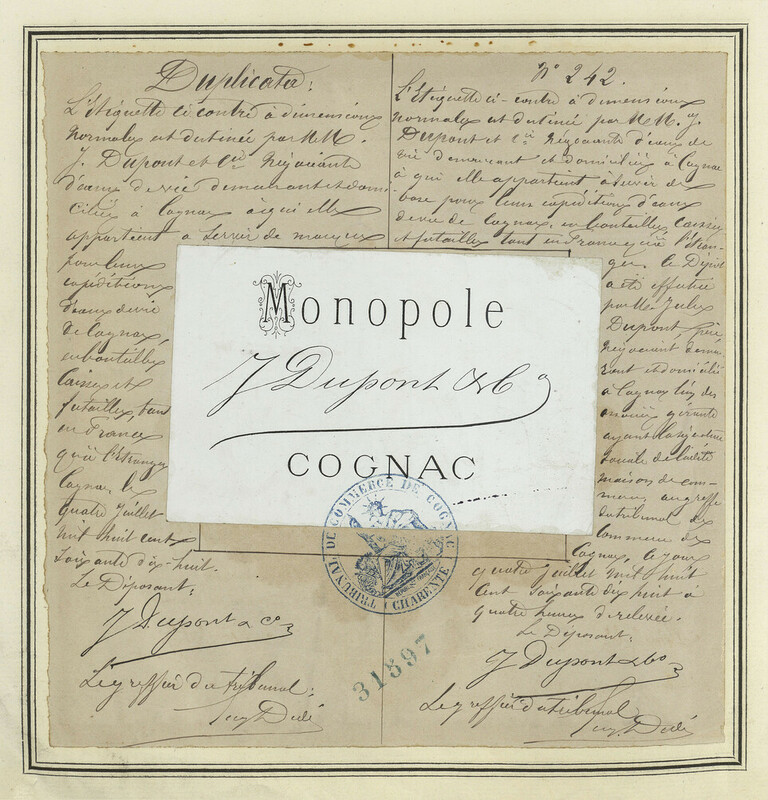 Duplicata:
L'étiquette ci contre à dimensions
normales est destinée par M.M.
J. Dupont et Cie Négociants
d'eaux de vie demeurant et domi
ciliés à Cognac à qui elle
appartient à servir de marque
pour leurs
expéditions
d'eaux de vie
de Cognac,
en bouteilles
caisses et
futailles tant
en France
qu'à l'étranger
Cognac, le
quatre Juillet
mil huit cent
soixante dix-huit.
Le Déposant:
J Dupont & Co
Le greffier du tribunal:
No 242.
L'étiquette ci-contre à dimensions
normales est destinée par M.M. J.
Dupont et Cie Négociants d'eaux de
vie demeurant et domiciliés à Cognac
à qui elle appartient à servir de
base pour leurs expéditions d'eaux
de vie de Cognac, en bouteilles, caisses
et futailles tant en France qu'à l'étran-
ger. Le Dépôt
a été effectué
par M. Jules
Dupont, père
Négociant demeu
rant et domicilié
à Cognac l'un des
associés gérants
ayant la signature
sociale de ladite
maison de com-
merce au greffe
du tribunal de
Commerce de
Cognac, le jour
quatre Juillet mil huit
cent soixante dix huit à
quatre heures de relevée.
Le Déposant:
J Dupont & Co
Le greffier du tribunal
Monopole
J Dupont & Co
COGNAC
TRIBUNAL DE COMMERCE DE COGNAC
CHARENTE
31897